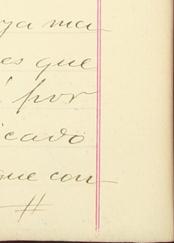 ya ma
es que
por
icado
que con-
#